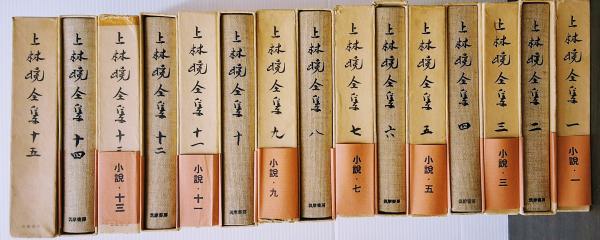 上林暁全集 十五
上林暁全集 十四
筑摩書房
上林暁全集 十三
小説・十三
上林暁全集 十二
筑摩書房
上林暁全集 十一
小説・十一
上林暁全集 十
筑摩書房
上林暁全集 九
小説・九
上林暁全集 八
筑摩書房
上林暁全集 七
小説・七
上林暁全集 六
筑摩書房
上林暁全集 五
小説・五
上林暁全集 四
筑摩書房
上林暁全集 三
小説・三
上林暁全集 二
筑摩書房
上林暁全集 一
小説・一